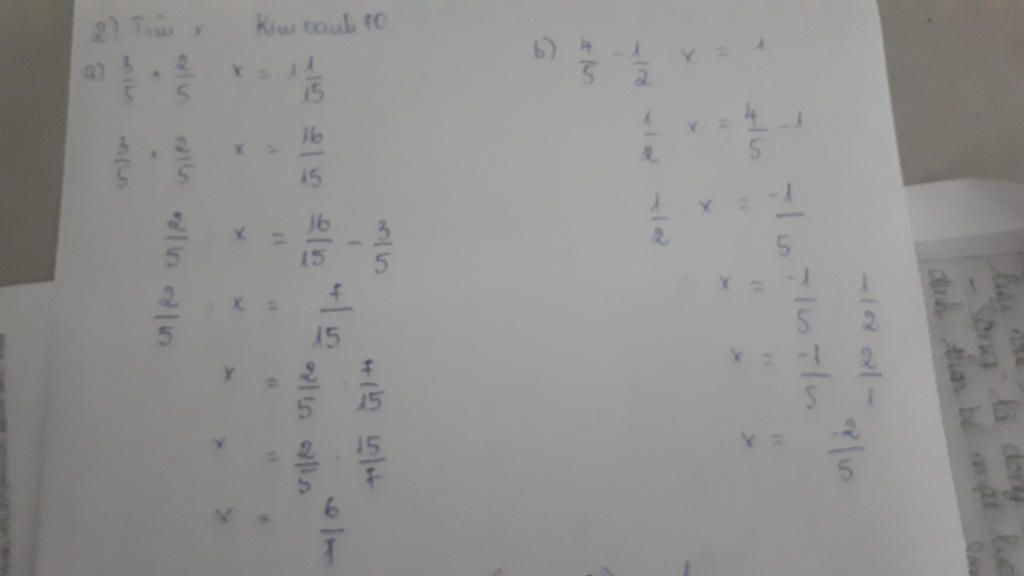 2) Tìm x Kimoanh70
a) 3/5 + 2/5 · x = 1 1/15
3/5 + 2/5 · x = 16/15
2/5 · x = 16/15 - 3/5
2/5 · x = 7/15
x = 2/5 : 7/15
x = 2/5 · 15/7
x = 6/7
b) 4/5 - 1/2 · x = 1
1/2 x = 4/5 - 1
1/2 · x = -1/5
x = -1/5 : 1/2
x = -1/5 · 2/1
x = -2/5